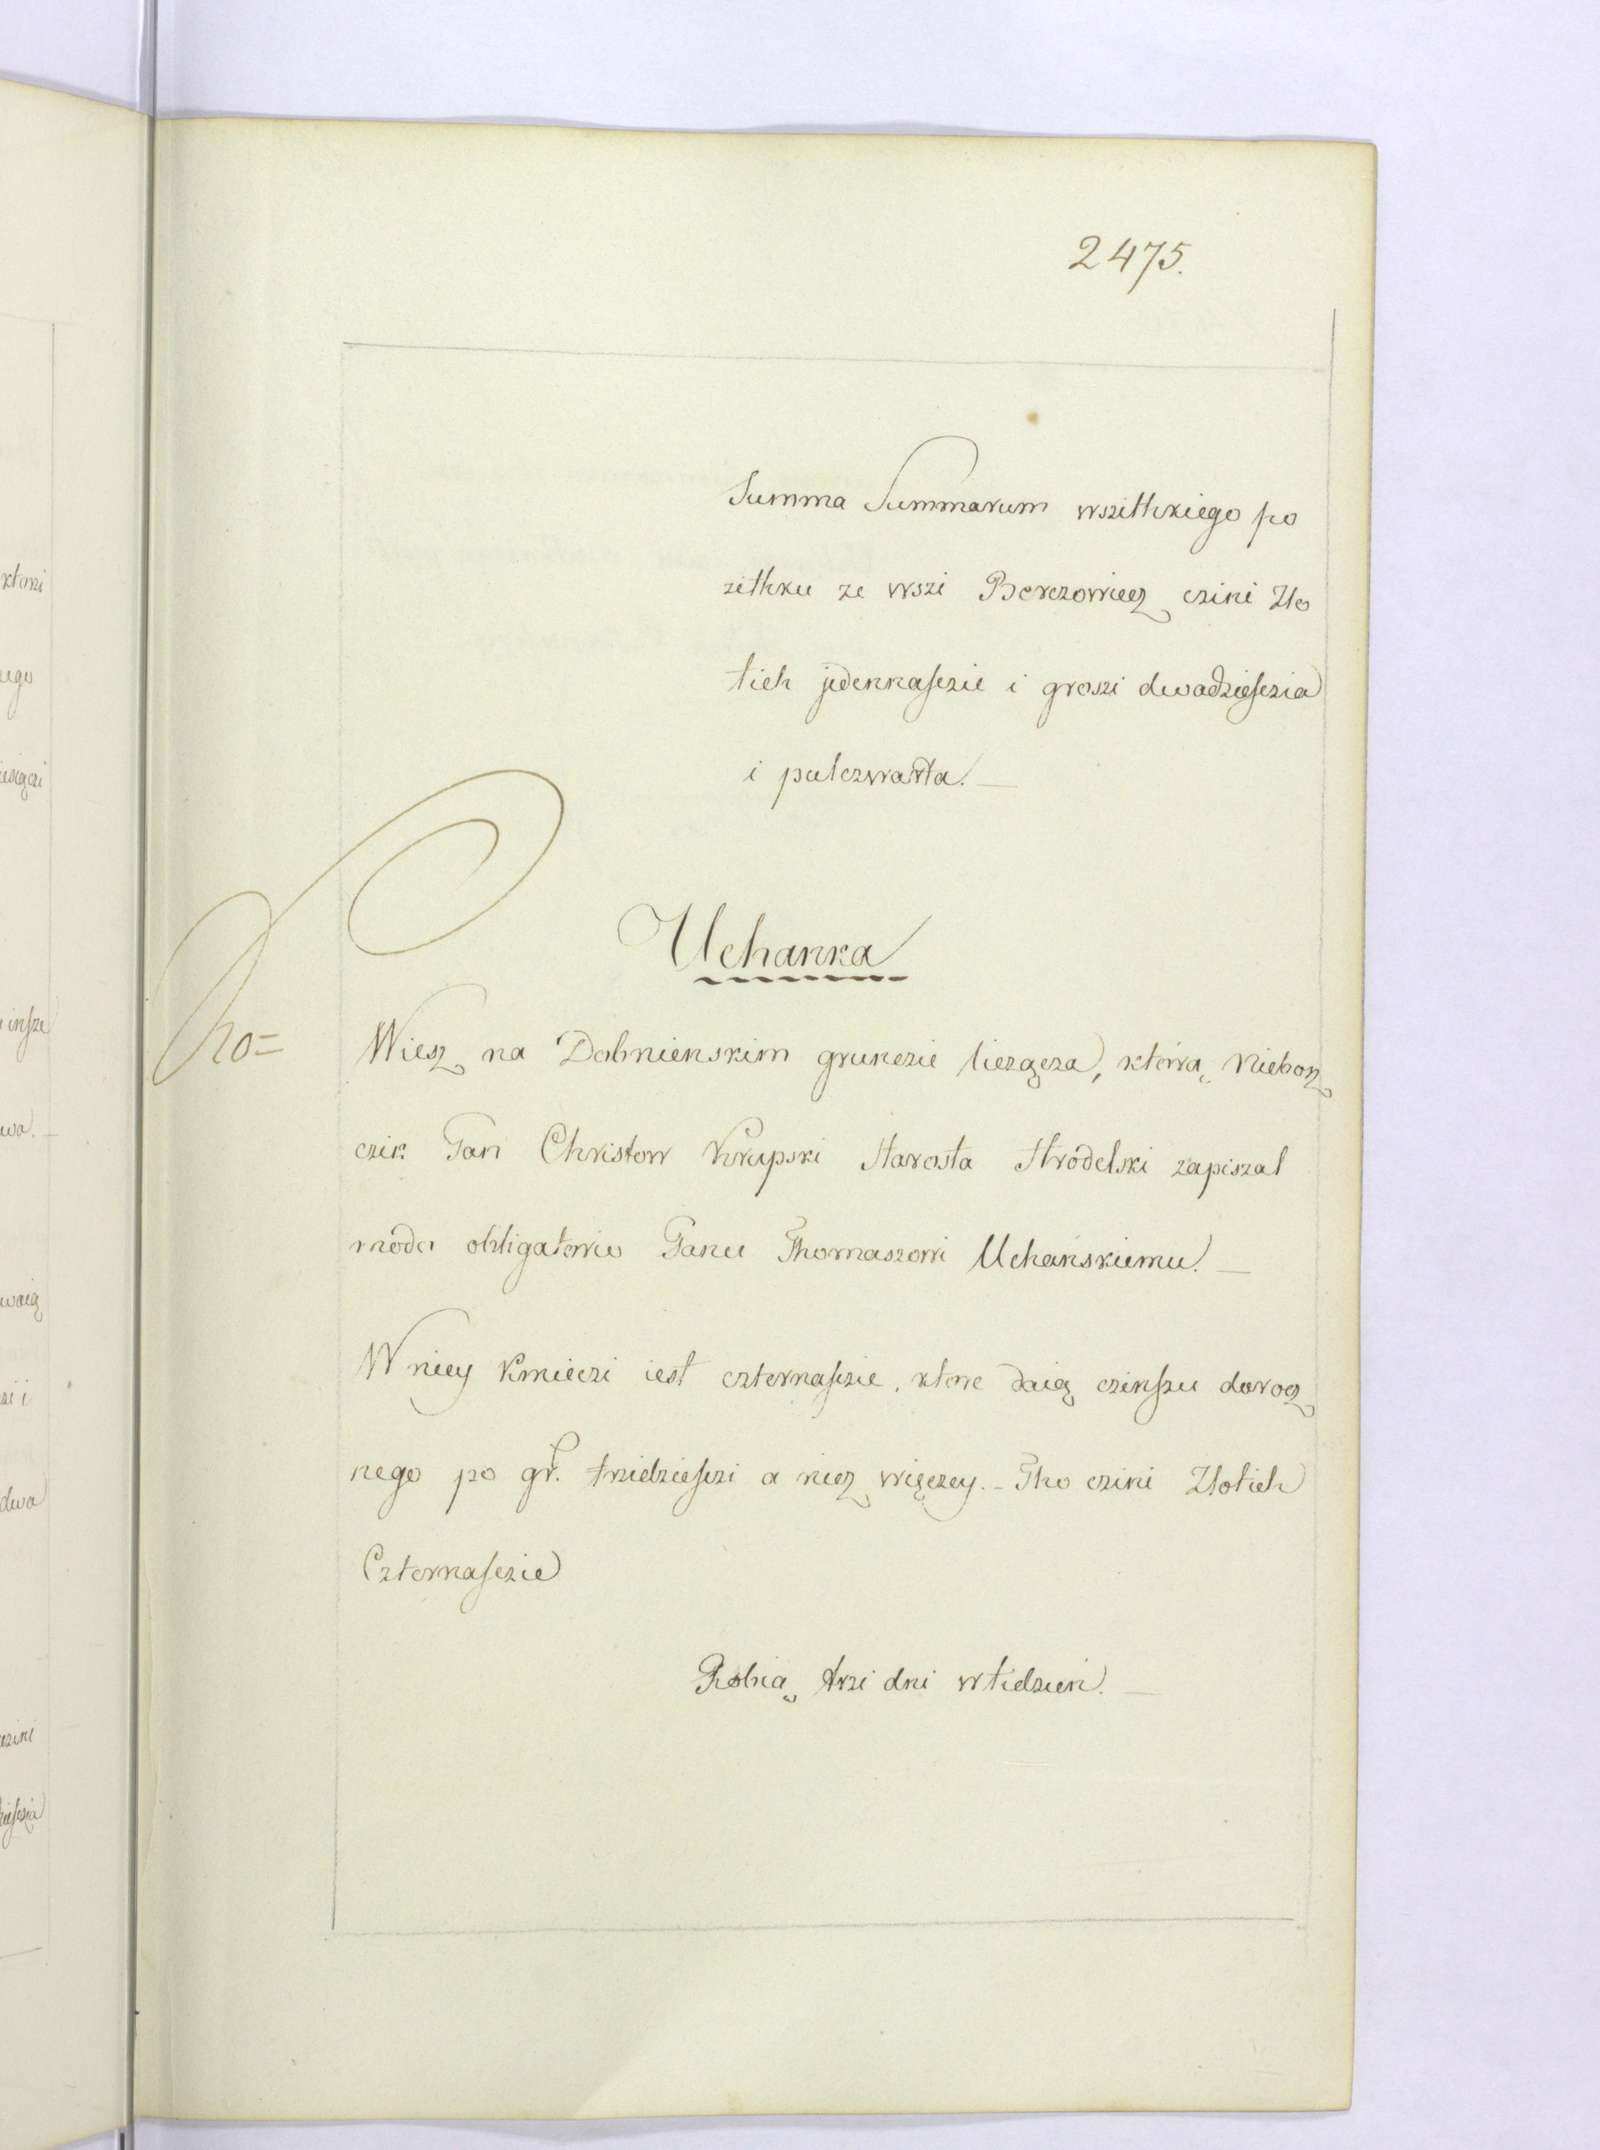 2475.
Summa Summarum wszithkiego po
zithku ze wszi Berezowiecz czini Zło
tich jedennascie i groszi dwadziescia
i pulczwarta. —
Uchanka
ho=
Wiesz na Dubnienskim gruncie liezącza, którą Niebosz
czik Pan Christow Krupski Starosta Hrodelski zapiszal
modo obligatorio Panu Thomaszowi Uchańskiemu. —
W niey Kmieczi iest czternascie, które daią czinszu dorocz
nego po gr. trzidziesczi a nicz więczey. – Tho czini Złotich
Czternascie
Robią trzi dni w tidzień. —
ktori
nego
insze
wa. —
waią
zi i
dwa
czini